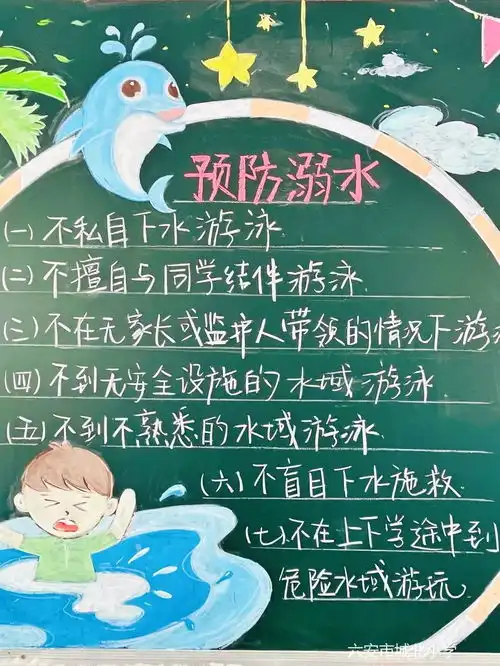 预防溺水
(一)不私自下水游泳
(二)不擅自与同学结伴游泳
(三)不在无家长或监护人带领的情况下游泳
(四)不到无安全设施的水域游泳
(五)不到不熟悉的水域游泳
(六)不盲目下水施救
(七)不在上下学途中到
危险水域游玩
六安市城北小学